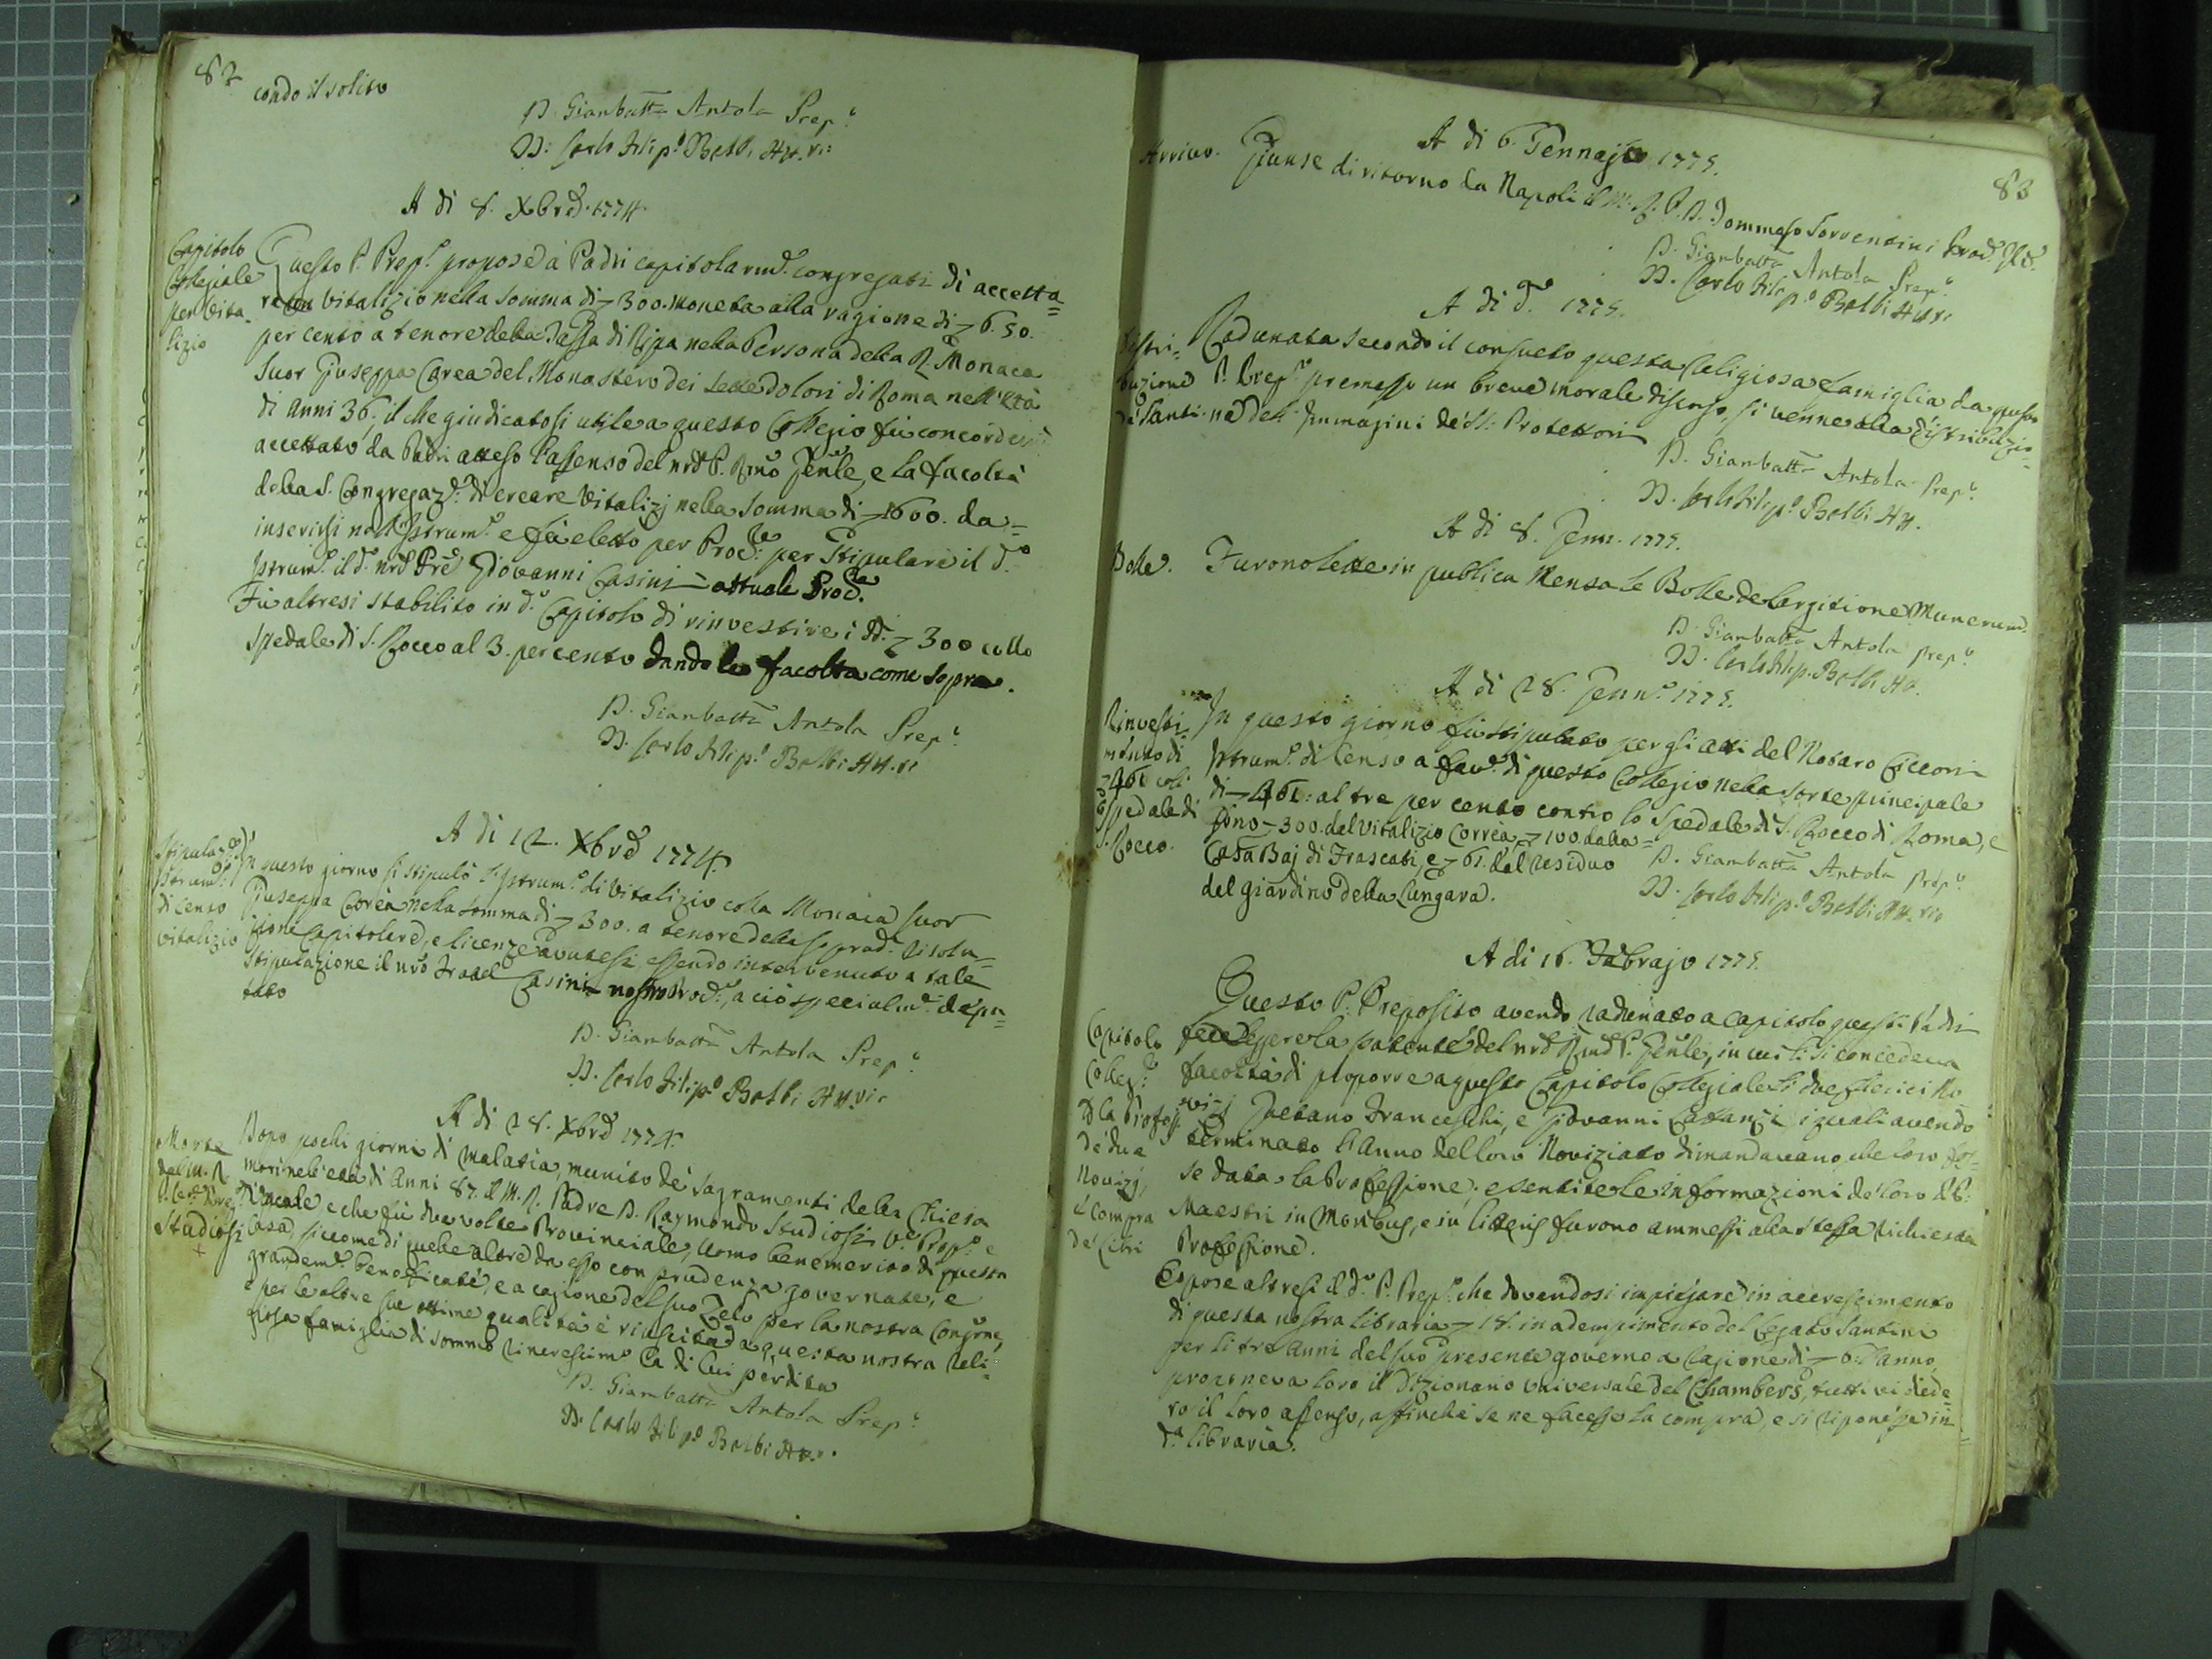 82
condo il solito
D. Gianbatta Antola Prep.o
D: Carlo Filip.o Balbi Att.rio
A di 8. Xbre 1774.
Capitolo
Collegiale
per Vita-
lizio
Questo P. Prep.o propose a Padri capitolarm.e congregati di accetta=
re un vitalizio nella somma di 300. moneta alla ragione di 6. 50.
per cento a tenore della Tassa di Ripa nella Persona della R. Monaca
Suor Giuseppa Corea del Monastero dei sette dolori di Roma nell'età
di Anni 36, il che giudicatosi utile a questo Collegio fù
accettato da Padri atteso l'assenso del nro P. Rmo Genle, e la facoltà
della S. Congregaz.e di creare Vitalizj nella somma di 1600. da=
inserirsi nell'Istrum.o e fù eletto per Proc.re per stipulare il d.o
Istrum.o il d.o nro Pre Giovanni Casini attuale Proc.re
Fù altresi stabilito in d.o Capitolo di rinvestire i dd. 300 collo
Spedale di S. Rocco al 3. per cento dando le facolta come sopra.
D. Gianbatta Antola Prep.o
D. Carlo Filip.o Balbi Att.rio
A di 12. Xbre 1774.
Stipulaz.e
Istrum.o
di Censo
vitalizio
In questo giorno si stipulò l'Istrum.o di Vitalizio colla Monaca Suor
Giuseppa Corea nella somma di 300. a tenore della soprad.a risolu=
zione Capitolare, e licenze avutesi essendo intervenuto a tale
stipulazione il nro Casini nostro Proc.re, a ciò specialm.e depu=
tato
D. Gianbatta Antola Prep.o
D. Carlo Filip.o Balbi Att.rio
A di 28. Xbre 1774.
Morte
del M. R.
Studiosi
+
Dopo pochi giorni di malatia, munito de' sagramenti della Chiesa
morì nell'età di Anni 87. il M. R. Padre D. Raymondo Studiosi V.e Prep.o e
Vocale e che fù due volte Provinciale, Uomo benemerito di questa
Casa, siccome di quelle altre da esso con prudenza governate, e
grandem.e beneficate, e a cagione del suo Zelo per la nostra Congrne,
e per le altre sue ottime qualità è riuscita a questa nostra Reli=
giosa famiglia di sommo rincrescim.o la di lui perdita
D. Gianbatta Antola Prep.o
D. Carlo Filip.o Balbi Att.rio
83
A di 6. Gennajo 1775.
Arrivo.
Giunse di ritorno da Napoli il M. R. P. D. Tommaso Sorrentini
D. Gianbatta Antola Prep.o
D. Carlo Filip.o Balbi Att.rio
A di d.o 1775.
Distri=
buzione
de' Santi
Radunata secondo il consueto questa Religiosa famiglia da questo
P. Prep.o premesso un breve morale discorso, si venne alla distribuzio=
ne delle Immagini de' SS: Protettori
D. Gianbatta Antola Prep.o
D. Carlo Filip.o Balbi Att.
A di 8. Genn. 1775.
Bolle.
Furono lette in publica Mensa le Bolle de largitione Munerum
D. Gianbatta Antola Prep.o
D. Carlo Filip. Balbi Att.
A di 28. Genn.o 1775.
Rinvesti=
mento di
461 collo
Spedale di
S. Rocco.
In questo giorno fù stipulato per gli atti del Notaro Cicconi
Istrum.o di Censo a fav.e di questo Collegio nella sorte principale
di 461: al tre per cento contro lo Spedale di S. Rocco di Roma, e
sono 300. del Vitalizio Correa, 100. dalla=
Casa Baj di Frascati, e 61. dal residuo
del giardino della Lungara.
D. Gianbatta Antola Prep.o
D. Carlo Filip.o Balbi Att.rio
A di 16. Febrajo 1775.
Capitolo
Colleg.e
p la Profess.
de due
Novizj,
e Compra
de' libri
Questo P: Preposito avendo radunato a Capitolo questi Padri
fece leggere la patente del nro Rmo P. Genle, in cui si concedeva
facoltà di proporre a questo Capitolo Collegiale li due Cherici No
vizj Gaetano Franceschi, e Giovanni Catanzi i quali avendo
terminato l'Anno del loro Noviziato dimandavano, che loro fos=
se data la Professione; e sentite le informazioni de' loro PP:
Maestri in Moribus, e in litteris furono ammessi alla stessa richiesta
Professione.
Espose altresi il d.o P. Prep.o che dovendosi impiegare in accrescimento
di questa nostra libraria 18. in adempimento del Legato Santini
per li tre Anni del suo presente governo a cagione di 6. l'anno
proponeva loro il Dizionario Universale del Chambers, tutti vi diede=
ro il loro assenso, affinchè se ne facesse la compra, e si riponesse in=
d.a libraria.